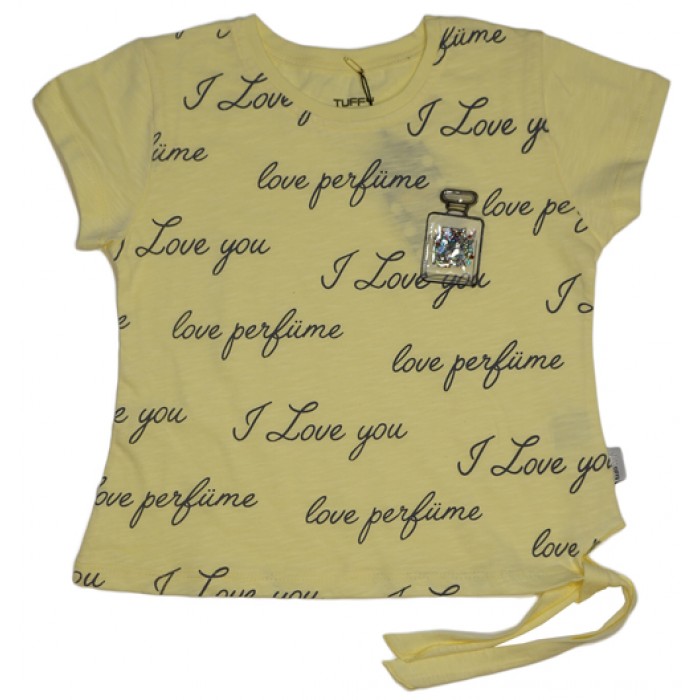 füme
I Love
TUFF
I Love yo
üme
love perfüme
love pe
I Love you
I Love you
I L
love perfüme
love perfüme
e you
I Love you
I Love you
ove perfüme
love perfüme
love
ou
I Love you